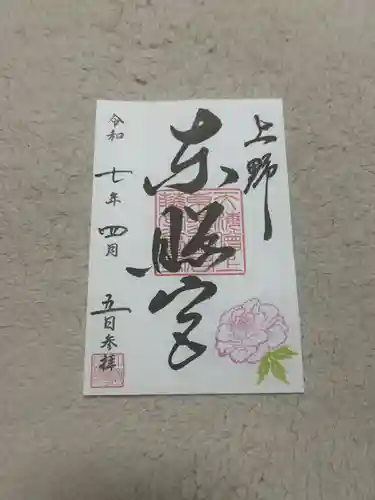 上野
东照宮
令和七年四月五日参拝